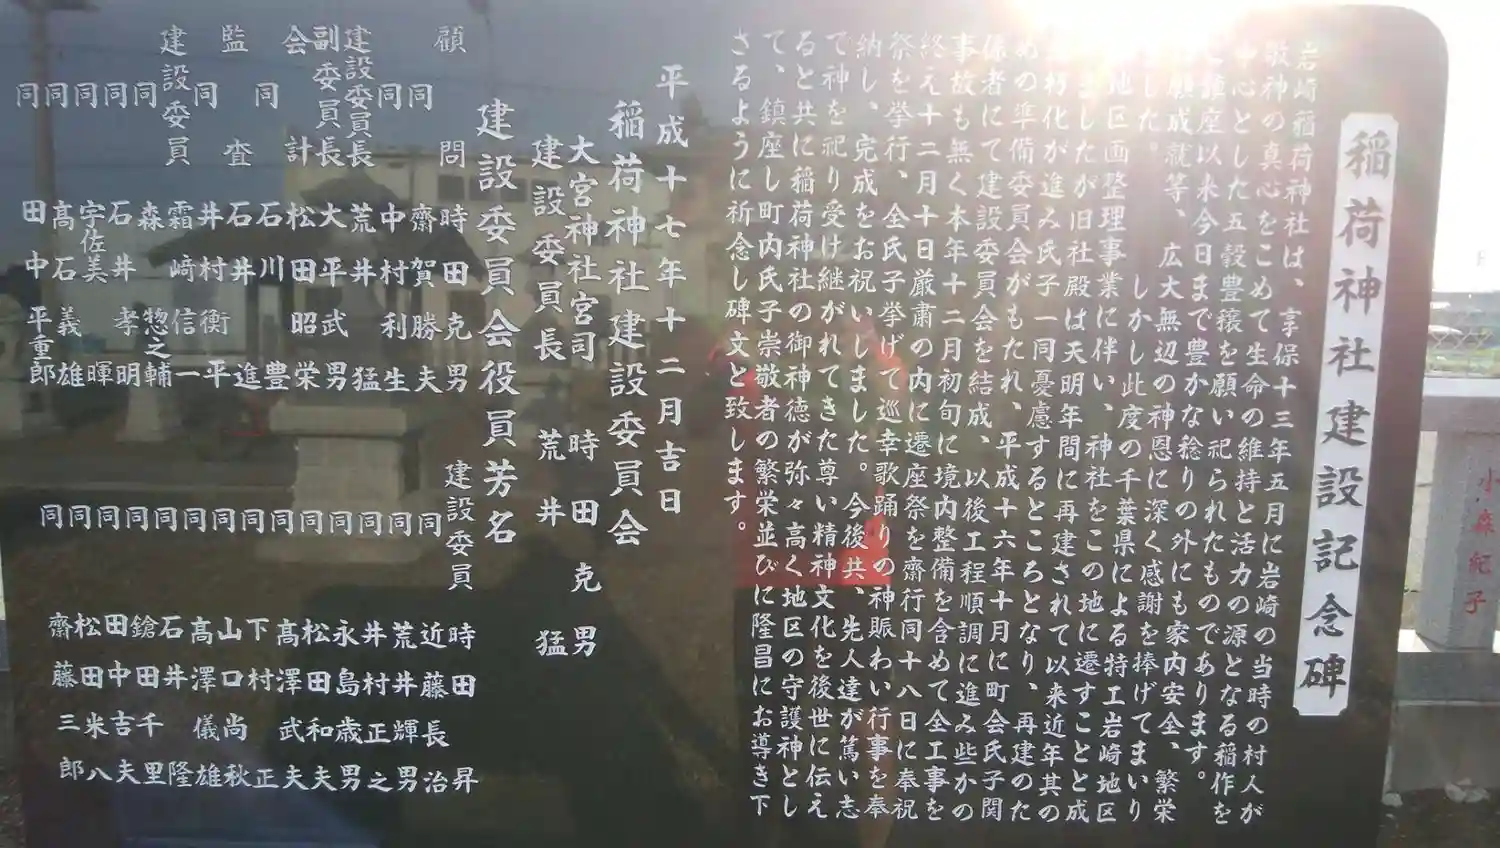 稲荷神社建設記念碑
岩崎稲荷神社は、享保十三年五月に岩崎の当時の村人が
敬神の真心をこめて生命の維持と活力の源となる稲作を
心とした五穀豊穣を願い祀られたものであります。
鎮座以来今日まで豊かな稔りの外にも家内安全、繁栄
願成就等、広大無辺の神恩に深く感謝を捧げてまいり
した。
しかし此度の千葉県による特工岩崎地区
地区画整理事業に伴い、神社をこの地に遷すことと成
ましたが旧社殿は天明年間に再建されて以来近年其の
朽化が進み氏子一同憂慮するところとなり、再建のた
めの準備委員会がもたれ、平成十六年十月に町会氏子関
係者にて建設委員会を結成、以後工程順調に進み些かの
事故も無く本年十二月初旬に境内整備を含めて全工事を
終え十二月十日厳粛の内に遷座祭を齋行同十八日に奉祝
祭を挙行、全氏子挙げて巡幸歌踊りの神賑わい行事を奉
納し、完成をお祝いしました。今後共、先人達が篤い志
で神を祀り受け継がれてきた尊い精神文化を後世に伝え
ると共に稲荷神社の御神徳が弥々高く地区の守護神とし
て、鎮座し町内氏子崇敬者の繁栄並びに隆昌にお導き下
さるように祈念し碑文と致します。
平成十七年十二月吉日
稲荷神社建設委員会
大宮神社宮司 時田克男
建設委員長 荒井猛
建設委員会役員芳名
顧問 時田克男
同 齋賀勝夫
同 中村利生
建設委員長 荒井猛
副委員長 大平武男
会計 松田昭栄
同 石川豊
監査 石井進
同 井村衡平
建設委員 霜崎信一
同 森惣之輔
同 石井孝明
同 宇佐美暉
同 高石義雄
同 田中平重郎
建設委員 時田昇
同 近藤長治
同 荒井輝男
同 井村正之
同 永島歳男
同 松田和夫
同 高澤武夫
同 下村正
同 山口尚秋
同 高澤儀雄
同 石井隆
同 鎗田千里
同 田中吉夫
同 松田米八
同 齋藤三郎
小森紀子